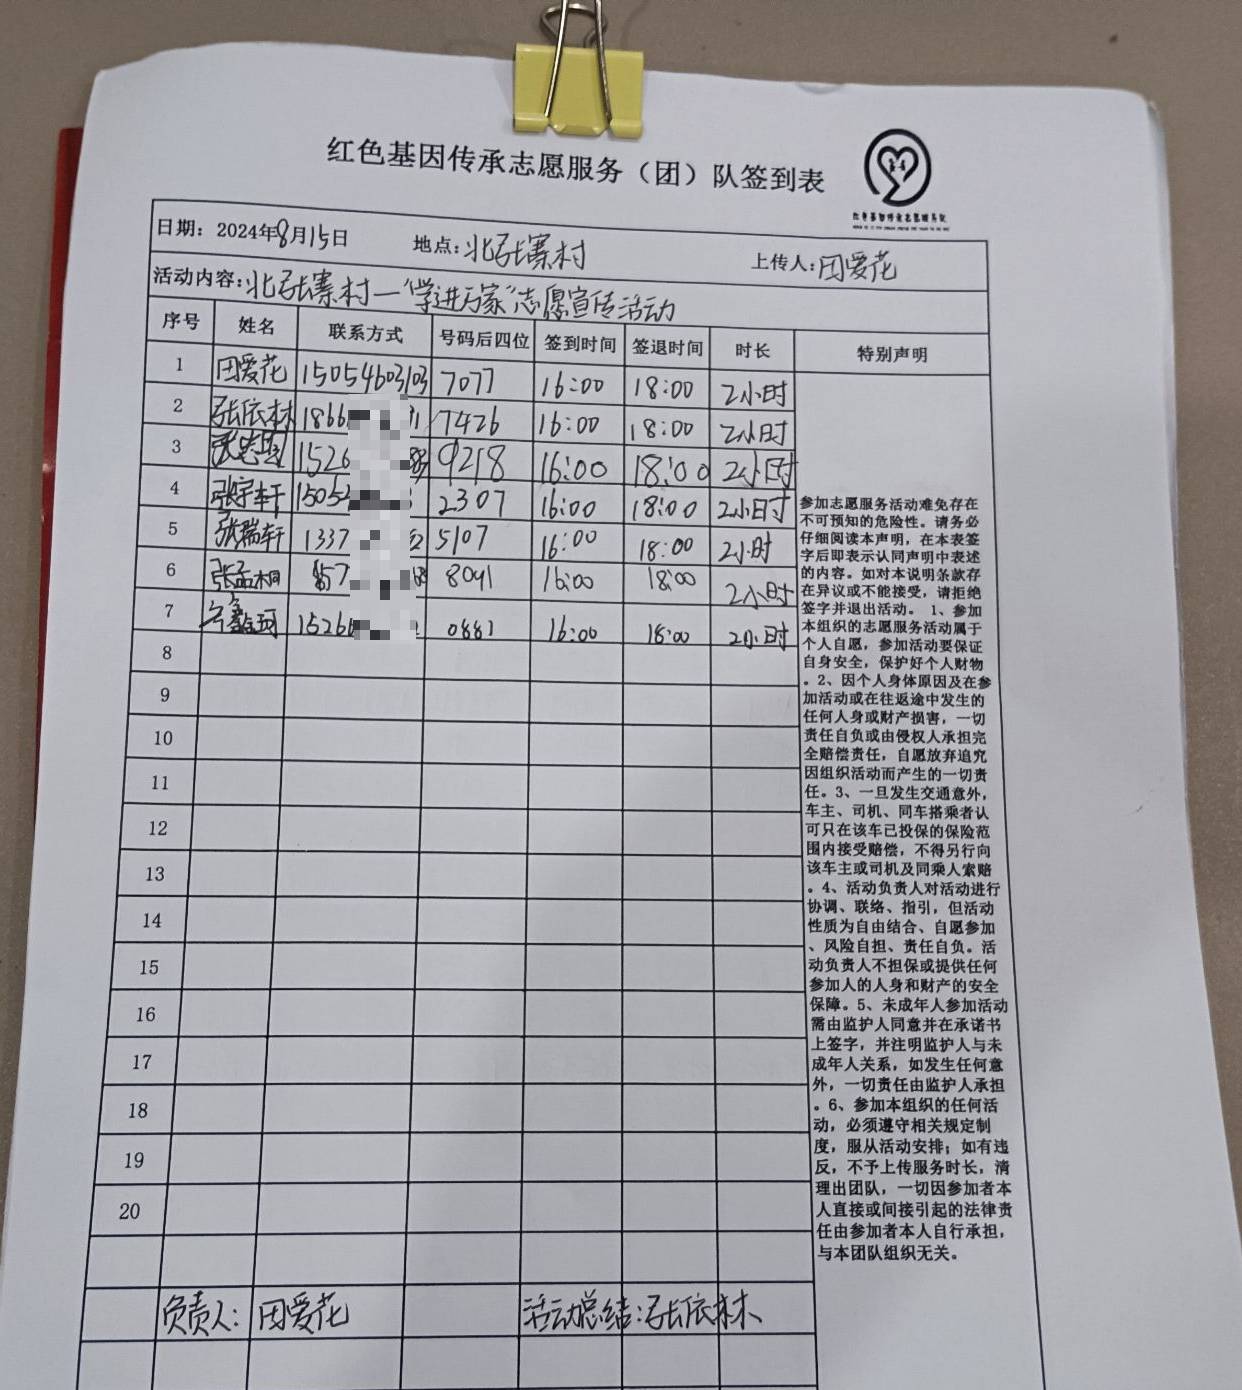 红色基因传承志愿服务（团）队签到表
日期：2024年8月15日 地点：北张寨村 上传人：田爱花
活动内容：北张寨村—“学进万家”志愿宣传活动
序号 姓名 联系方式 号码后四位 签到时间 签退时间 时长 特别声明
1 田爱花 15054603103 7077 16:00 18:00 2小时
2 张依林 1866 31 7426 16:00 18:00 2小时
3 1526 9218 16:00 18:00 2小时
4 张宇轩 1505 2307 16:00 18:00 2小时
5 张瑞轩 1337 2 5107 16:00 18:00 2小时
6 张孟桐 157 68 8041 16:00 18:00 2小时
7 1526 0881 16:00 18:00 2小时
8
9
10
11
12
13
14
15
16
17
18
19
20
参加志愿服务活动难免存在
不可预知的危险性。请务必
仔细阅读本声明，在本表签
字后即表示认同声明中表述
的内容。如对本说明条款存
在异议或不能接受，请拒绝
签字并退出活动。 1、参加
本组织的志愿服务活动属于
个人自愿，参加活动要保证
自身安全，保护好个人财物
。2、因个人身体原因及在参
加活动或在往返途中发生的
任何人身或财产损害，一切
责任自负或由侵权人承担完
全赔偿责任，自愿放弃追究
因组织活动而产生的一切责
任。3、一旦发生交通意外，
车主、司机、同车搭乘者认
可只在该车已投保的保险范
围内接受赔偿，不得另行向
该车主或司机及同乘人索赔
。4、活动负责人对活动进行
协调、联络、指引，但活动
性质为自由结合、自愿参加
、风险自担、责任自负。活
动负责人不担保或提供任何
参加人的人身和财产的安全
保障。5、未成年人参加活动
需由监护人同意并在承诺书
上签字，并注明监护人与未
成年人关系，如发生任何意
外，一切责任由监护人承担
。6、参加本组织的任何活
动，必须遵守相关规定制
度，服从活动安排；如有违
反，不予上传服务时长，清
理出团队，一切因参加者本
人直接或间接引起的法律责
任由参加者本人自行承担，
与本团队组织无关。
负责人：田爱花 活动总结：张依林